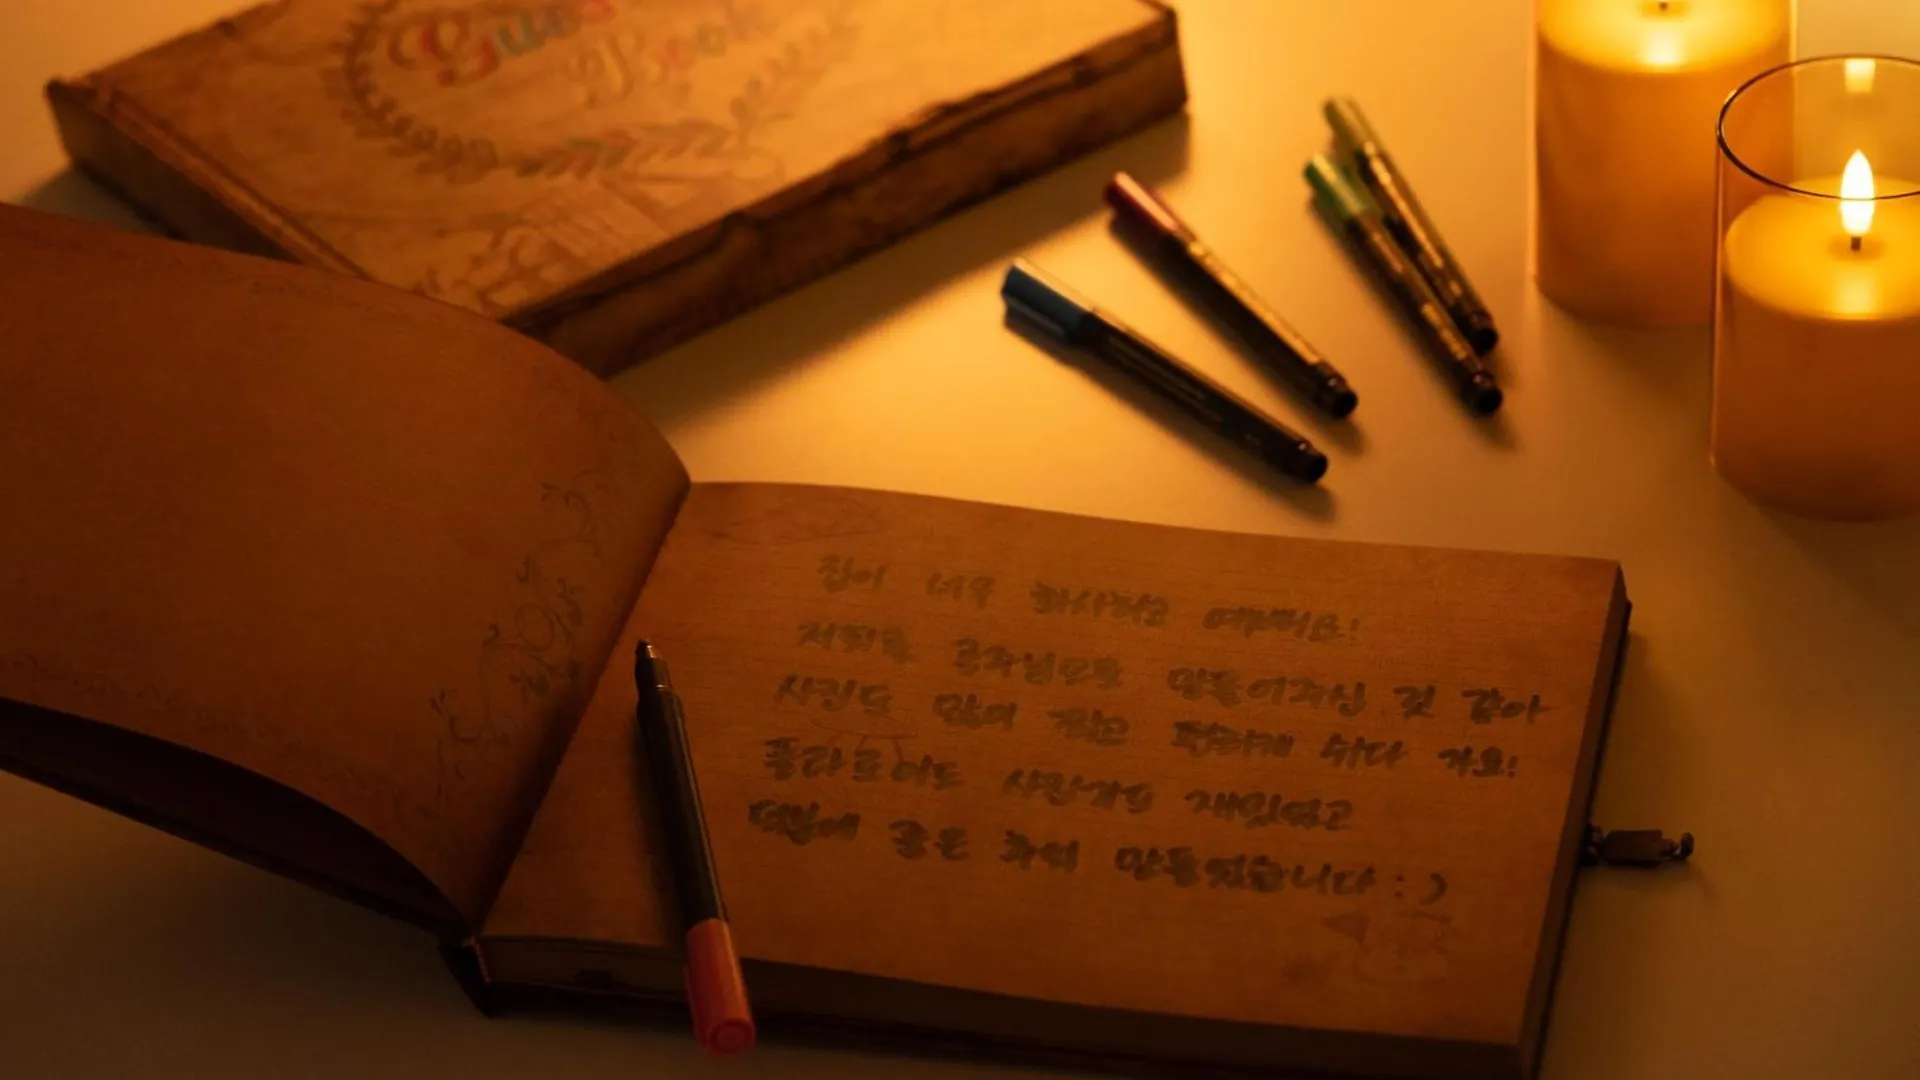 Guest Book
집이 너무 화사하고 예뻐요!
저희를 만들어주신 것 같아
사진도 많이 찍고 편하게 쉬다 가요!
폴라로이드 사진기도 재밌었고
덕분에 좋은 추억 만들었습니다 :)